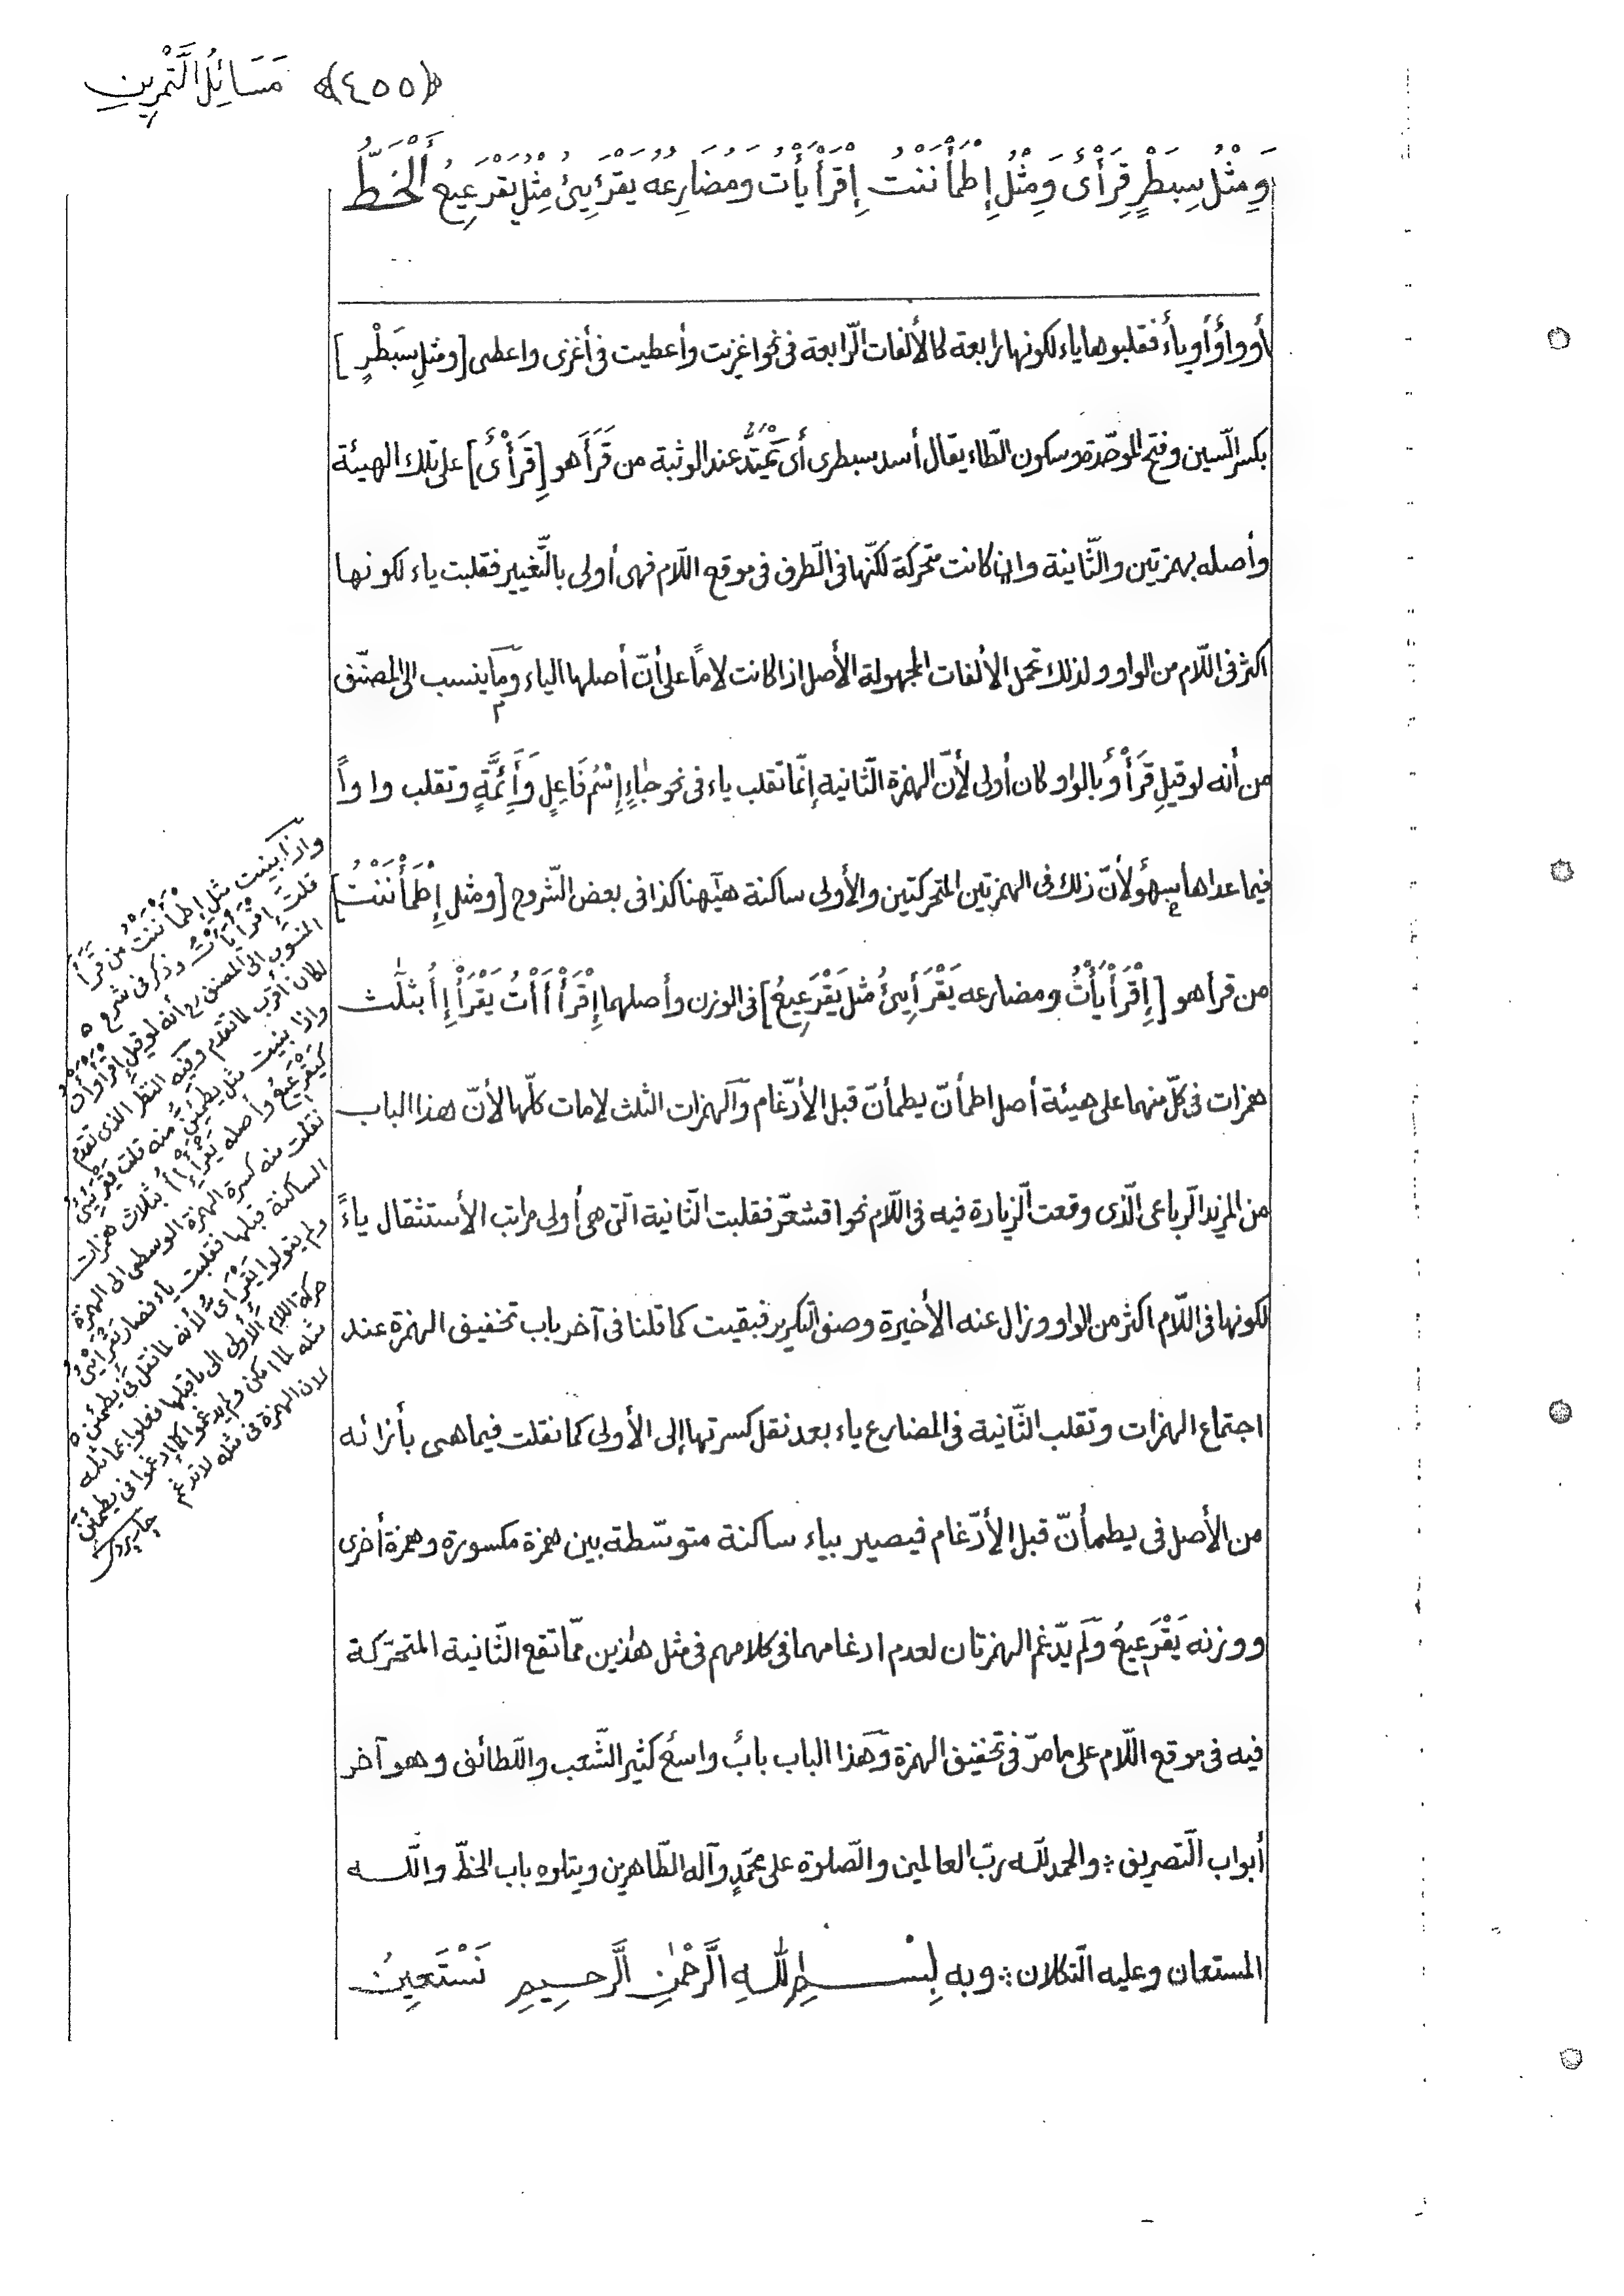 ﴿٤٥٥﴾ مَسَائِلُ الَّتمْرِينِ
وَمِثْلُ سِبَطْرٍ قِرَأْىٌ وَمِثْلُ إِطْمَأْنَنْتُ إِقْرَأْيَأْتُ وَمُضَارِعُهُ يَقْرَئِيْئُ مِثْلُ يَقْرَعِيْعُ أَلْخَطُّ
أو واؤ أو ياء فقلبوها ياء لكونها رابعة كالألفات الرّابعة فى نحو اغزيت وأعطيت فى أغزى واعطى [ومثل سِبَطْرٍ]
بكسر السّين وفتح الموحّدة وسكون الطّاء يقال أسد سبطرى أى يَمْتَدُّ عند الوثبة من قَرَأَ هو [قِرَأْىٌ] على تلك الهيئة
وأصله بهمزتين والثّانية وان كانت متحركة لكنّها فى الطّرف فى موقع اللّام فهى أولى بالتّغيير فقلبت ياء لكونها
اكثر فى اللّام من الواو ولذلك تحمل الألفات المجهولة الأصل اذا كانت لاماً على أنّ أصلها الياء وما ينسب الى المصنّف
من أنه لو قيل قِرَأْوٌ بالواو كان أولى لأنّ الهمزة الثّانية إنّما تقلب ياء فى نحو جٰاءٍ إِسْمُ فَاعِلٍ وَأَئِمَّةٍ وتقلب واواً
فيما عداها سهؤ لأنّ ذلك فى الهمزتين المتحركتين والأولى ساكنة هيٰهنا كذا فى بعض الشّروح [ومثل إِطْمَأْنَنْتُ]
من قرأ هو [إِقْرَأْيَأْتُ ومضارعه يَقْرَأِيْئُ مثل يَقْرَعِيْعُ] فى الوزن وأصلهما إِقْرَأْأَأْتُ يَقْرَأْإِأُ بثلٰث
همزات فى كلّ منهما على هيئة أصل اطمأنّ يطمأنّ قبل الأدّغام وَالهمزات الثلث لامات كلّها لأنّ هذا الباب
من المزيد الرّباعى الّذى وقعت الزّيادة فيه فى اللّام نحو اقشعرّ فقلبت الثّانية الّتى هى أولى مراتب الأستثقال ياءً
لكونها فى اللّام اكثر من الواو وزال عنه الأخيرة وصف التكرير فبقيت كما قلنا فى آخر باب تخفيف الهمزة عند
اجتماع الهمزات وتقلب الثّانية فى المضارع ياء بعد نقل كسرتها إلى الأولى كما نقلت فيما هى بأزائه
من الأصل فى يطمأنّ قبل الأدّغام فيصير بياء ساكنة متوسّطة بين همزة مكسورة وهمزة أخرى
ووزنه يَقْرَعِيْعُ وَلم يدّغم الهمزتان لعدم ادغامهما فى كلامهم فى مثل هٰذين ممّا تقع الثّانية المتحرّكة
فيه فى موقع اللّام على ما مرّ فى تخفيف الهمزة وَهذا الباب بابٌ واسعٌ كثير الشّعب واللّطائف وهو آخر
أبواب التّصريف ؛ والحمد للّٰه ربّ العالمين والصّلوة على محمّدٍ وآله الطّاهرين ويتلوه باب الخطّ واللّه
المستعان وعليه التّكلان ؛ وبه بِسْمِ اللّٰهِ الرَّحْمٰنِ الرَّحِيمِ نَسْتَعِينُ
واذا بنيت مثل إطمأننت من قرأ
قلت اقرأيأت وذكر فى شرح
المنسوب الى المصنف رح أنه لو قيل اقرأوأت
لكان أقرب لما تقدم وفيه النظر الذى تقدم
واذا بنيت مثل يطمئن منه قلت يقرئيئ
كيقرعيع وأصله يقرأإأ بثلاث همزات
نقلت منه كسرة الهمزة الوسطى الى الهمزة
الساكنة قبلها فقلبت ياء فصار يقرإيئ
ولم يقولوا يقرأىّ لأنه لما نقل فى يطمئن
حركة اللام الأولى الى ما قبلها فعلوا بمماثله
مثله لما امكن ولم يدغموا كما ادغموا فى يطمئن
لان الهمزة فى مثله لا تدغم جاربردى